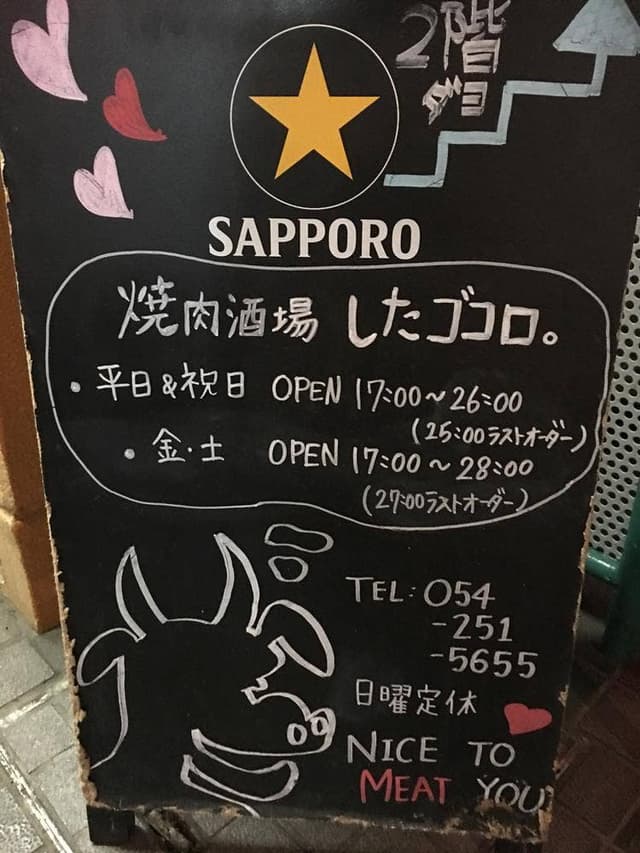 2階
SAPPORO
焼肉酒場 したゴコロ。
・平日&祝日 OPEN 17:00～26:00
(25:00ラストオーダー)
・金・土 OPEN 17:00～28:00
(27:00ラストオーダー)
TEL: 054
-251
-5655
日曜定休
NICE TO
MEAT YOU